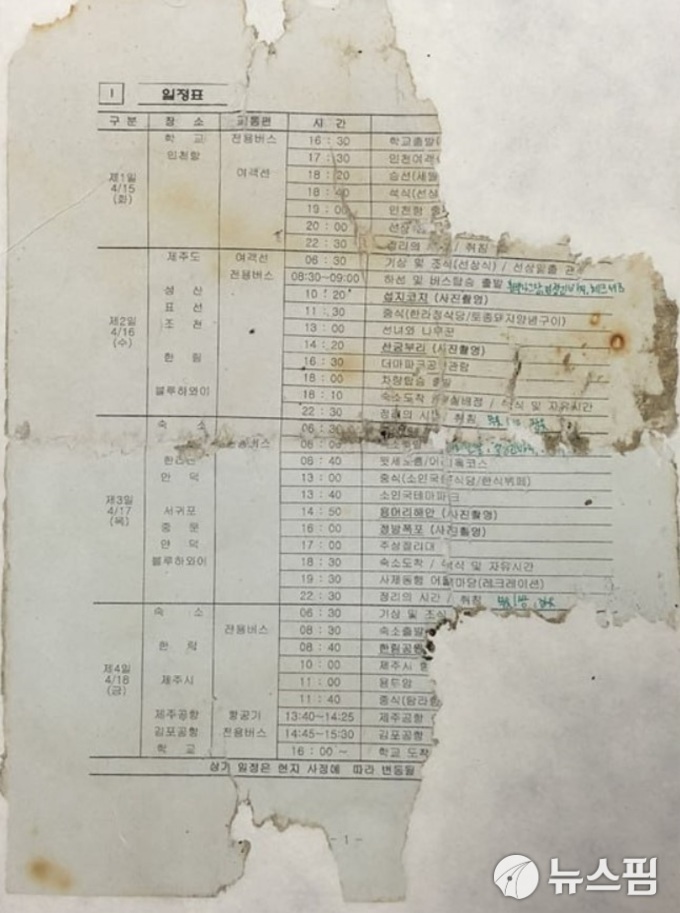 I 일정표
구 분 장 소 교통편 시 간
제1일 4/15 (화)
학 교 전용버스 16 : 30 학교출발
인천항 17 : 30 인천여객
여객선 18 : 20 승선(세월
18 : 40 석식(선상
19 : 00 인천항
20 : 00 선상
22 : 30 정리의 시간 / 취침
제2일 4/16 (수)
제주도 여객선 06 : 30 기상 및 조식(선상식) / 선상일출 관
전용버스 08:30~09:00 하선 및 버스탑승 출발
성 산 10 : 20 섭지코지 (사진촬영)
표 선 11 : 30 중식(한라정식당/토종돼지양념구이)
조 천 13 : 00 선녀와 나무꾼
14 : 20 산굼부리 (사진촬영)
한 림 16 : 30 더마파크공연관람
18 : 00 차량탑승 출발
블루하와이 18 : 10 숙소도착 / 배정 / 석식 및 자유시간
22 : 30 정리의 시간 / 취침
제3일 4/17 (목)
숙 소 06 : 30
전용버스 08 : 00 숙소출발
한라산 08 : 40 윗세오름/어리목코스
안 덕 13 : 00 중식(소인국 식당/한식뷔페)
13 : 40 소인국테마파크
서귀포 14 : 50 용머리해안 (사진촬영)
중 문 16 : 00 정방폭포 (사진촬영)
안 덕 17 : 00 주상절리대
블루하와이 18 : 30 숙소도착 / 석식 및 자유시간
19 : 30 사제동행 어울마당(레크레이션)
22 : 30 정리의 시간 / 취침
제4일 4/18 (금)
숙 소 06 : 30 기상 및 조식
전용버스 08 : 30 숙소출발
한 림 08 : 40 한림공원
10 : 00 제주시
제주시 11 : 00 용두암
11 : 40 중식(탐라
제주공항 항공기 13:40~14:25 제주공항
김포공항 전용버스 14:45~15:30 김포공항
학 교 16 : 00 ~ 학교 도착
상기 일정은 현지 사정에 따라 변동될
- 1 -
뉴스핌